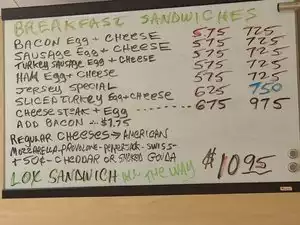 BREAKFAST SANDWICHES
BACON Egg + CHEESE 5.75 725
SAUSAGE Egg + CHEESE 575 725
TURKEY SAUSAGE Egg + CHEESE 575 725
HAM Egg + CHEESE 575 725
JERSEY SPECIAL 575 725
SLICED TURKEY Egg + CHEESE 625 750
CHEESE STEAK + Egg ........ 675 975
ADD BACON - $1.75
REGULAR CHEESES → AMERICAN
MOZZARELLA - PROVOLONE - PEPPERJACK - SWISS -
+ 50¢ - CHEDDAR OR SMOKED GOUDA
LOX SANDWICH ALL THE WAY $10.95